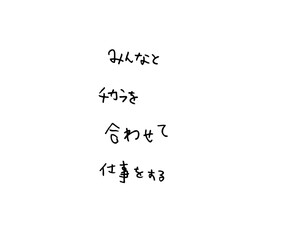 みんなと
チカラを
合わせて
仕事をする